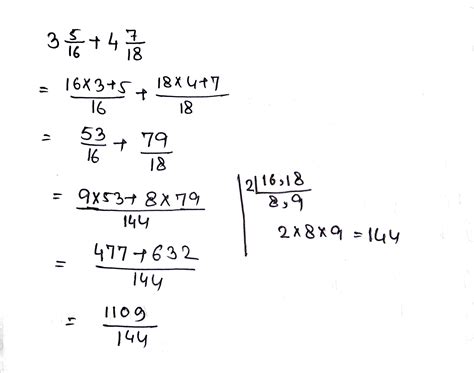 3 5/16 + 4 7/18
= (16×3+5)/16 + (18×4+7)/18
= 53/16 + 79/18
= (9×53+8×79)/144
= (477+632)/144
= 1109/144
2 | 16,18
8,9
2×8×9 = 144